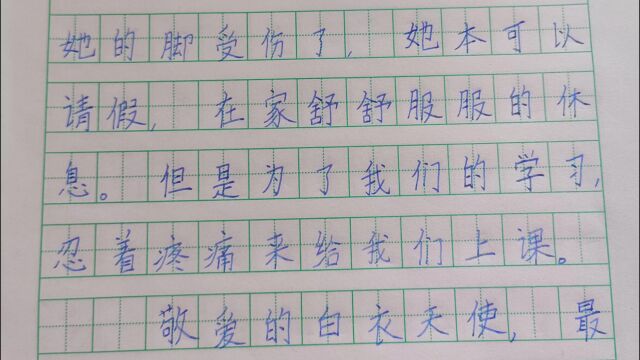 她的脚受伤了，她本可以
请假，在家舒舒服服的休
息。但是为了我们的学习，
忍着疼痛来给我们上课。
敬爱的白衣天使，最